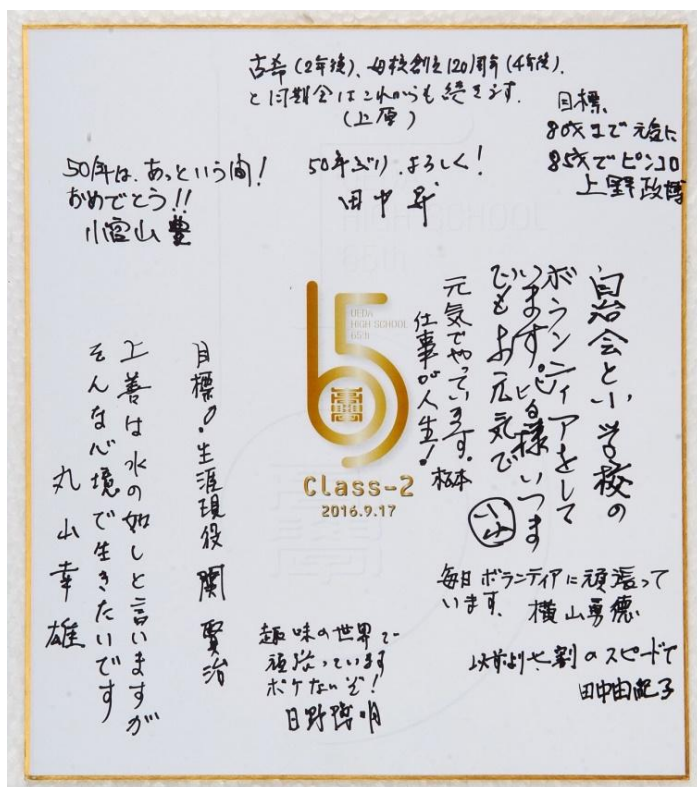 古希(2年後)、母校創立120周年(4年後)、
と同期会はこれからも続きます.
(上原)
目標、
80才まで元気に
85才でピンコロ
上野政博
50年は、あっという間!
おめでとう!!
小宮山 豊
50年ぶり、よろしく!
田中 昇
UEDA
HIGH SCHOOL
65th
Class-2
2016.9.17
自治会と小学校の
ボランティアをして
います。皆様いつま
でもお元気で
元気でやっています。
仕事が人生!
松本
目標。生涯現役 関 賢治
上善は水の如しと言いますが
そんな心境で生きたいです
丸山幸雄
毎日ボランティアに頑張って
います. 横山勇德
趣味の世界で
頑張っています
ボケないぞ!
日野
以前より七割のスピードで
田中由紀子